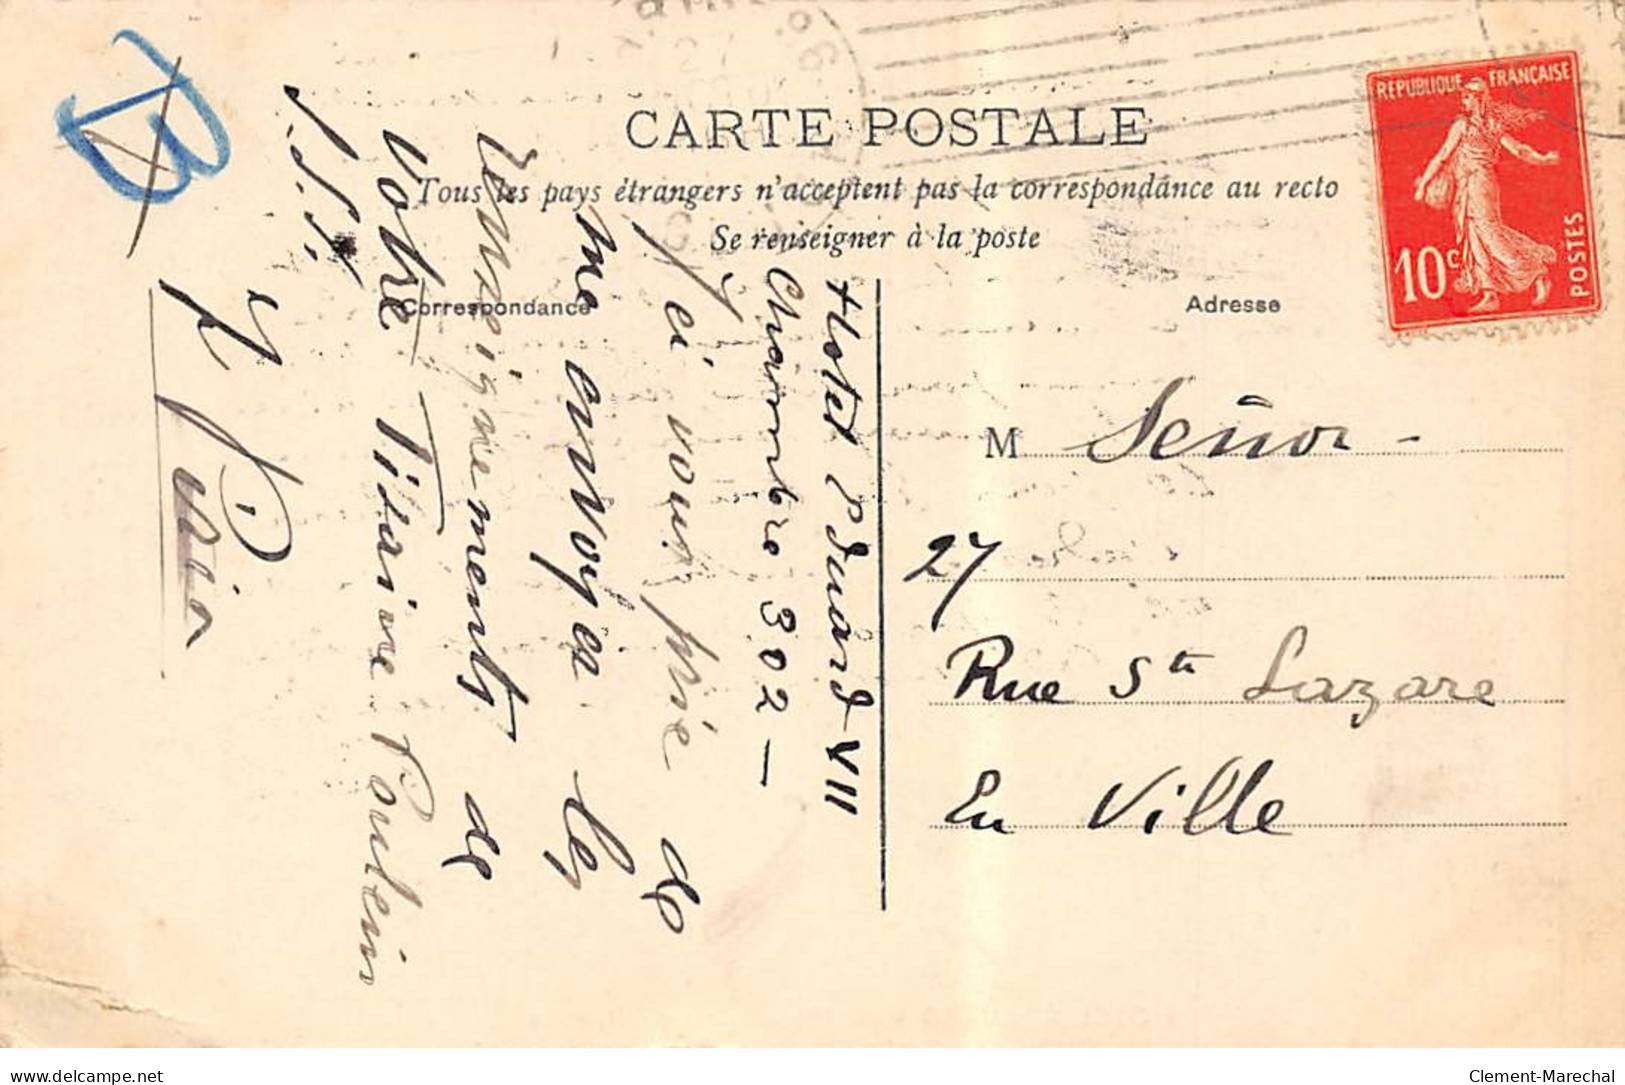 CARTE POSTALE
Tous les pays étrangers n'acceptent pas la correspondance au recto
Se renseigner à la poste
Correspondance
Adresse
REPUBLIQUE FRANÇAISE
10c
POSTES
M Señor -
27
Rue St Lazare
En Ville
Hotel Eduard VII
Chambre 302 -
J'ai vous prie de
me envoyer les
renseignements de
votre Titaine Poulein
S.S.S.
clement1.delcampe.net
Clement-Marechal